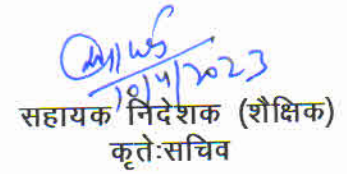 10/4/2023
सहायक निदेशक (शैक्षिक)
कृतेःसचिव